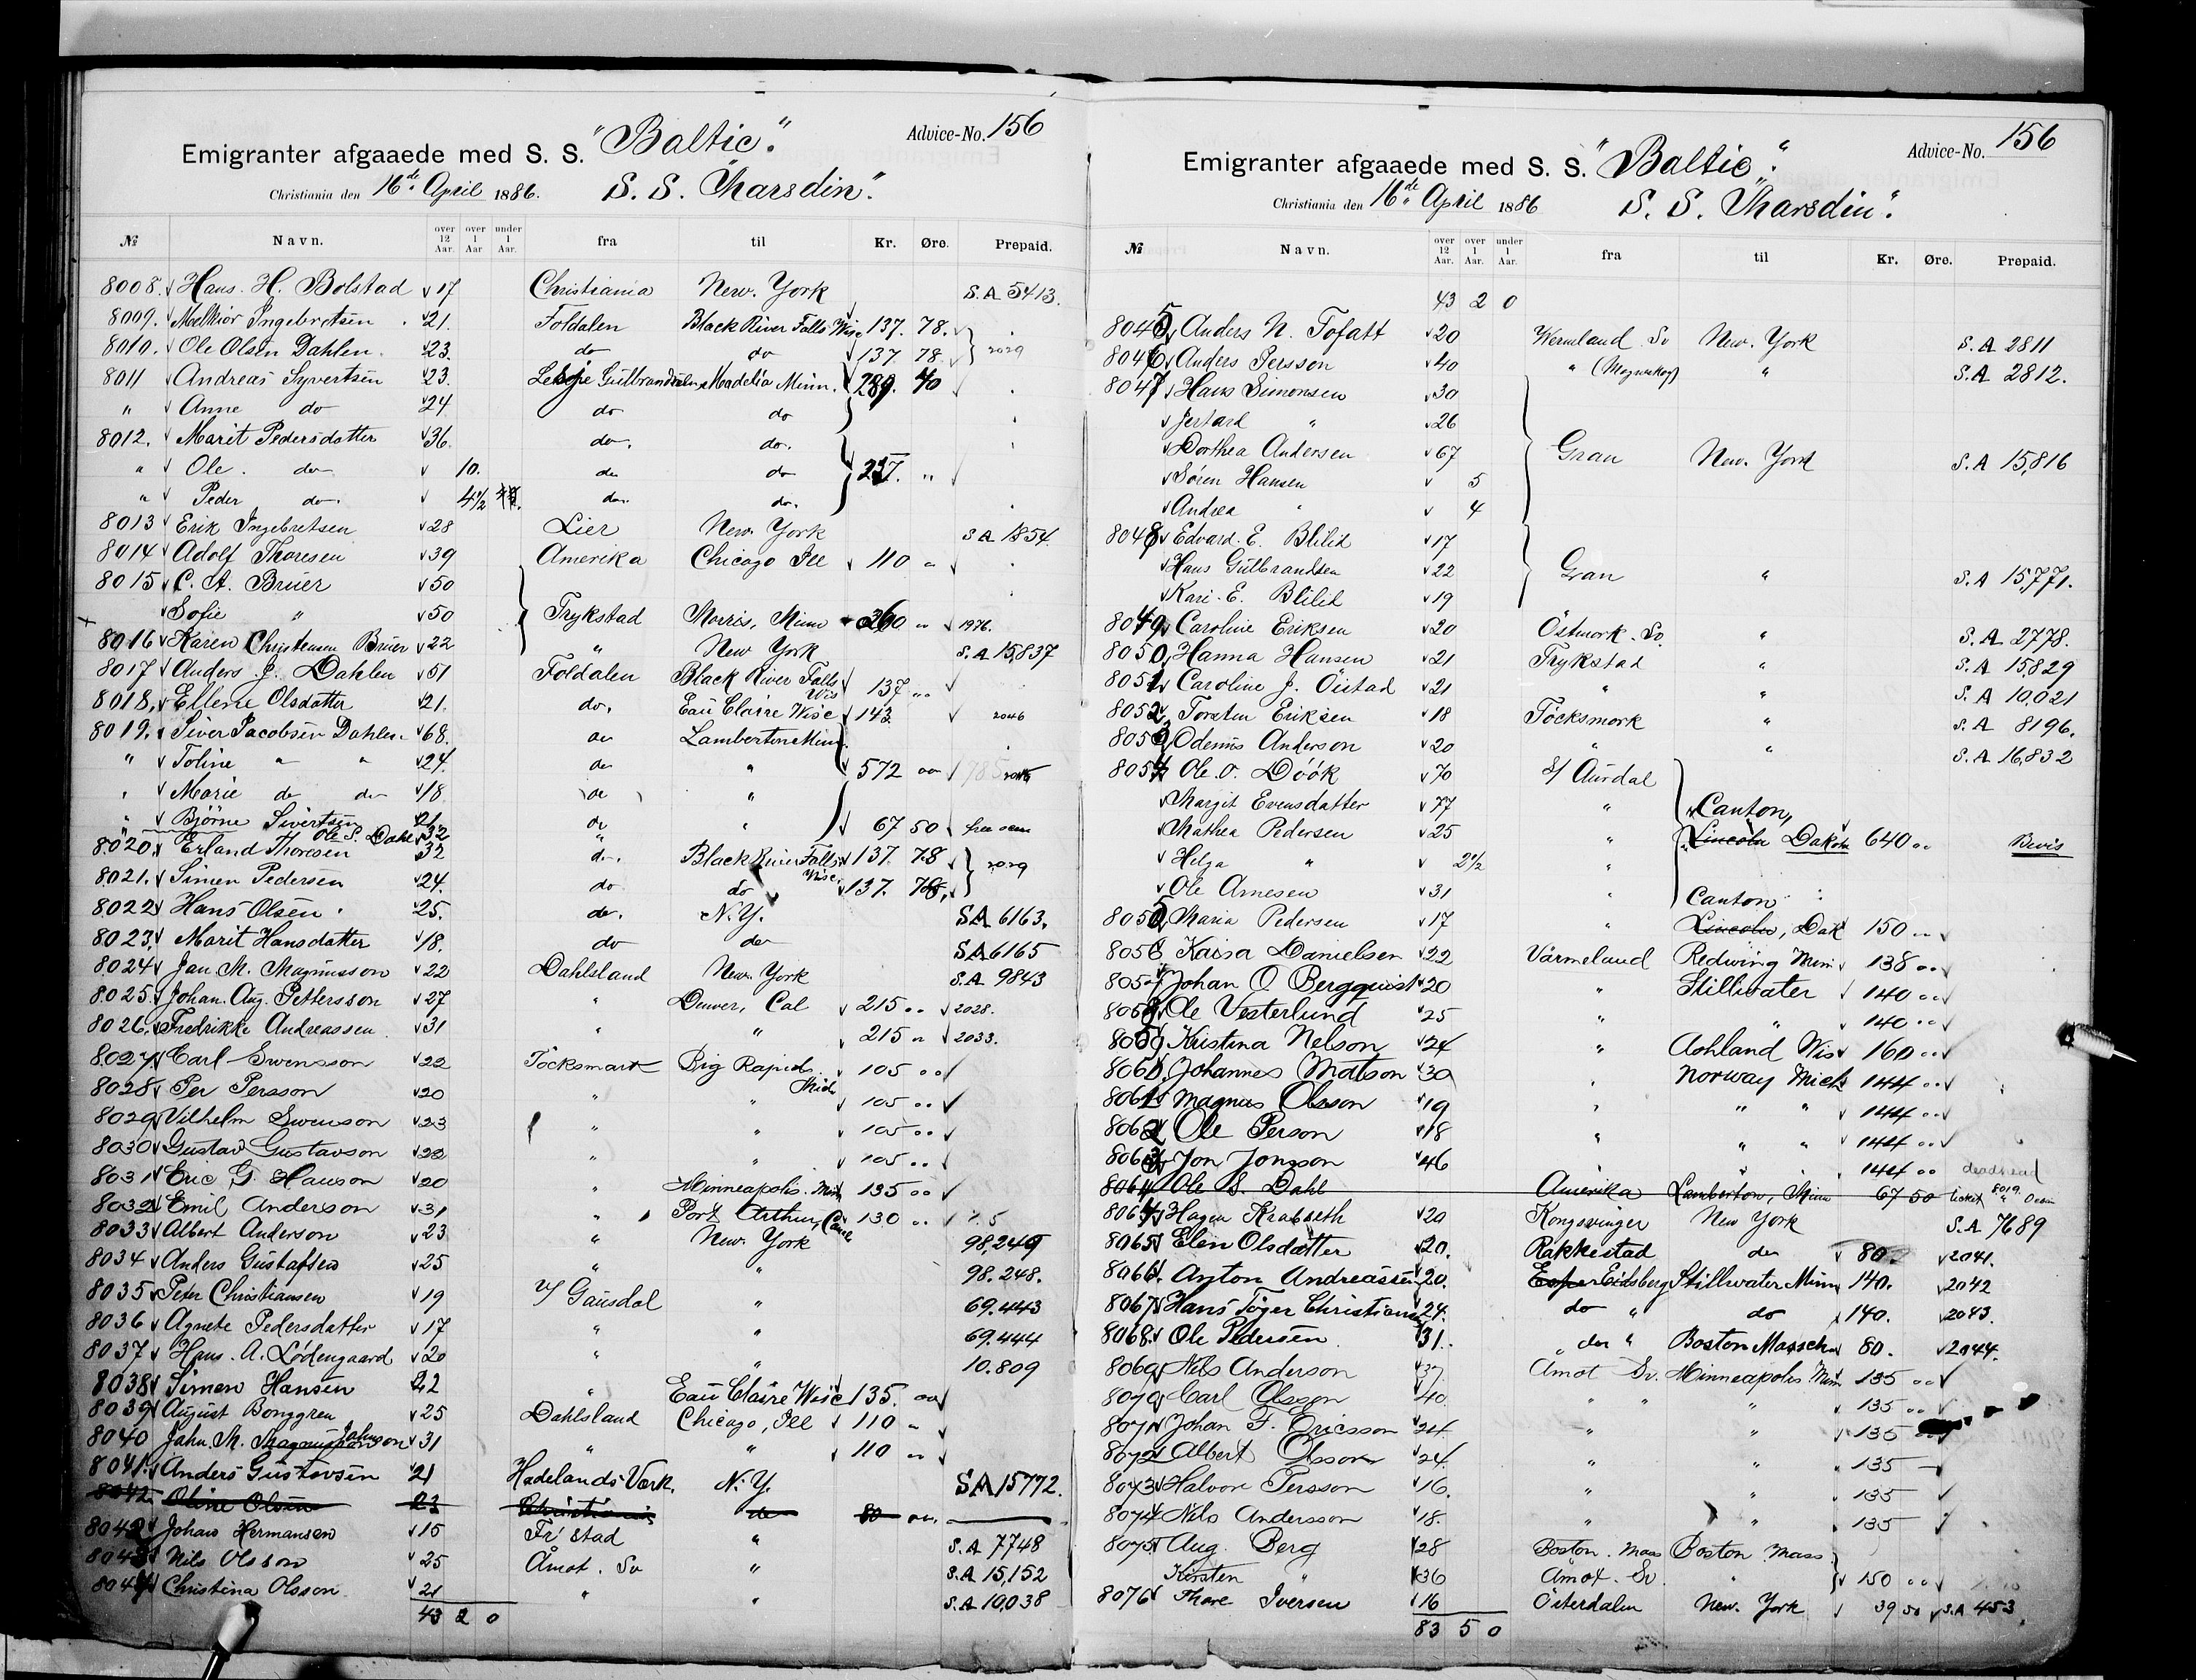 Emigranter afgaaede med S. S. "Baltic". Advice-No. 156
Christiania den 16de April 1886. S. S. Marsdin".
№ Navn. over 12 Aar. over 1 Aar under 1 Aar. fra til Kr. Øre. Prepaid.
8008. Hans. H. Bolstad 17 Christiania New. York S.A 5413.
8009. Melkior Ingebretsen 21. Foldalen Black River Falls Wisc 137. 78.
8010. Ole Olsen Dahlen. 23. do do 137 78 2029
8011 Andreas Syvertsen 23. Gulbrandsdalen Madelia Minn. 289. 40
" Anne do 24 do do
8012. Marit Pedersdatter 36. do. do.
" Ole. do 10. do do 237. "
" Peder do. 4½ do. do.
8013 Erik Ingebretsen 28 Lier New. York SA 1854.
8014 Adolf Thoresen 39 Amerika Chicago Ill 110 "
8015 C. A. Bruer 50
Sofie " 50 Trykstad Morris, Minn 260 " 1976.
8016 Karen Christensen Bruer 22 " New York S.A 15,837
8017 Anders J. Dahlen 51 Foldalen Black River Falls Wis 137 ""
8018. Ellene Olsdatter 21. do. Eau Claire Wisc 143 2046
8019. Siver Jacobsen Dahlen 68. do Lamberton Minn.
" Toline " " 24. do " 572 00
" Marie do do 18 do "
" Bjørne Sivertsen 21 do " 67 50 free ocean
" Ole S. Dahl 32 "
8020. Erland Thoresen 32 do. Black River Falls Wisc. 137. 78 2029
8021. Simen Pedersen 24. do do 137. 78.
8022 Hans Olsen 25. do. N.Y. SA 6163.
8023. Marit Hansdatter 18. do do SA 6165
8024 Jan. M. Magnusson 22 Dahlsland New. York S.A 9843
8025. Johan. Aug. Pettersson 27 " Denver, Cal 215 .. 2028.
8026. Fredrikke Andreassen 31 " " 215 " 2033.
8027 Carl Swensson 22 Töcksmark Big Rapids. Mich 105 00
8028 Per Persson 20 " " 105 00
8029 Vilhelm Swenson 23 " " 105 00
8030 Gustav Gustavson 22 " " 105 00
8031 Eric G. Hanson 20 " Minneapolis. Min 135 00
8032 Emil Anderson 31 " Port Arthur, Can 130 ..
8033 Albert Anderson 23 " New. York 98,249
8034 Anders Gustafsen 25 " " 98.248.
8035 Peter Christiansen 19 V/ Gausdal " 69.443
8036 Agnete Pedersdatter 17 " " 69.444
8037 Hans. A. Lødengaard 20 " " 10.809
8038 Simen Hansen 22 " Eau Claire Wisc 135. 00
8039 August Bonggren 25 Dahlsland Chicago, Ill 110 "
8040 John. M. Magnusson Johnson 31 " " 110 "
8041. Anders Gustavsen 21 Hadelands Værk. N.Y. SA 15772.
8042. Oline Olsen 23 Christiania do 80 00.
8042 Johan Hermansen 15 Fr'stad " S.A 7748
8043 Nils Olsson 25 Åmot. Sv " S.A 15,152
8044 Christina Olsson 21 " " S.A 10,038
43 2 0
Emigranter afgaaede med S. S. "Baltic". Advice-No. 156
Christiania den 16de April 1886 S. S. Marsdin".
№ Navn. over 12 Aar. over 1 Aar. under 1 Aar. fra til Kr. Øre. Prepaid.
43 2 0
8045 Anders N. Tofatt 20 Wermland Sv New. York S.A 2811
8046 Anders Persson 40 " " S.A 2812.
8047 Hans Simonsen 30
Jertard " 26
Dorthea Andersen 67 Gran New. York S.A 15,816
Søren Hansen 5
Andrea " 4
8048 Edvard. E. Blilid 17
Hans Gulbrandsen 22 Gran " S.A 15,771.
Kari. E. Blilid 19
8049 Caroline Eriksen 20 Östmork. Sv. " S.A. 2778.
8050 Hanna Hansen 21 Trykstad " S.A 15,829
8051 Caroline J. Öistad 21 " " S.A 10,021
8052 Torsten Eriksen 18 Töcksmork " S.A 8196.
8053 Odenus Anderson 20 " " S.A 16,832
8054 Ole. O. Döök 70 S/ Aurdal
Margit Evensdatter 77 " Canton,
Mathea Pedersen 25 " Lincoln Dakota 640 .. Bevis
Helga " 2½ "
Ole Arnesen 31 " Canton
8055 Maria Pedersen 17 " Lincoln, Dak 150 ..
8056 Kaisa Danielsen 22 Värmeland Redwing Minn 138 ..
8057 Johan O Bergquist 20 " Stillwater 140 ..
8058 Ole Vesterlund 25 " " 140 ..
8059 Kristina Nelson 24 " Ashland Wis 160 ..
8060 Johannes Matson 30 " Norway Mich 144 ..
8061 Magnus Olsson 19 " " " 144 ..
8062 Ole Person 18 " " " 144 ..
8063 Jon Jonsson 46 " 144 .. deadhead
8064 Ole S. Dahl Amerika Lamberton, Minn 67 50 ticket 8019. Ocean
8064 Hagen Krabseth 20 Kongsvinger New York S.A 7689
8065 Elen Olsdatter 20. Rakkestad do 80. 2041.
8066 Anton Andreassen 20. Eidsberg Stillwater Minn 140. 2042
8067 Hans Töger Christiansen 24. do " do 140. 2043.
8068. Ole Pedersen 31. do " Boston Massch 80. 2044.
8069 Nils Anderson 37 Amot Sv. Minneapolis Min 135 ..
8070 Carl Olsson 40. " " " 135 ..
8071 Johan F. Ericsson 24. " " 135 ..
8072 Albert Olsson 24. " " 135
8073 Halvor Persson 16. " " 135
8074 Nils Andersson 18. " " 135
8075 Aug. Berg 28 Boston. Mass Boston Mass.
Kirsten " 36 Åmot. Sv. " 150 00
8076 Thore Iversen 16 Österdalen New. York 39 50 S.A 453
83 5 0